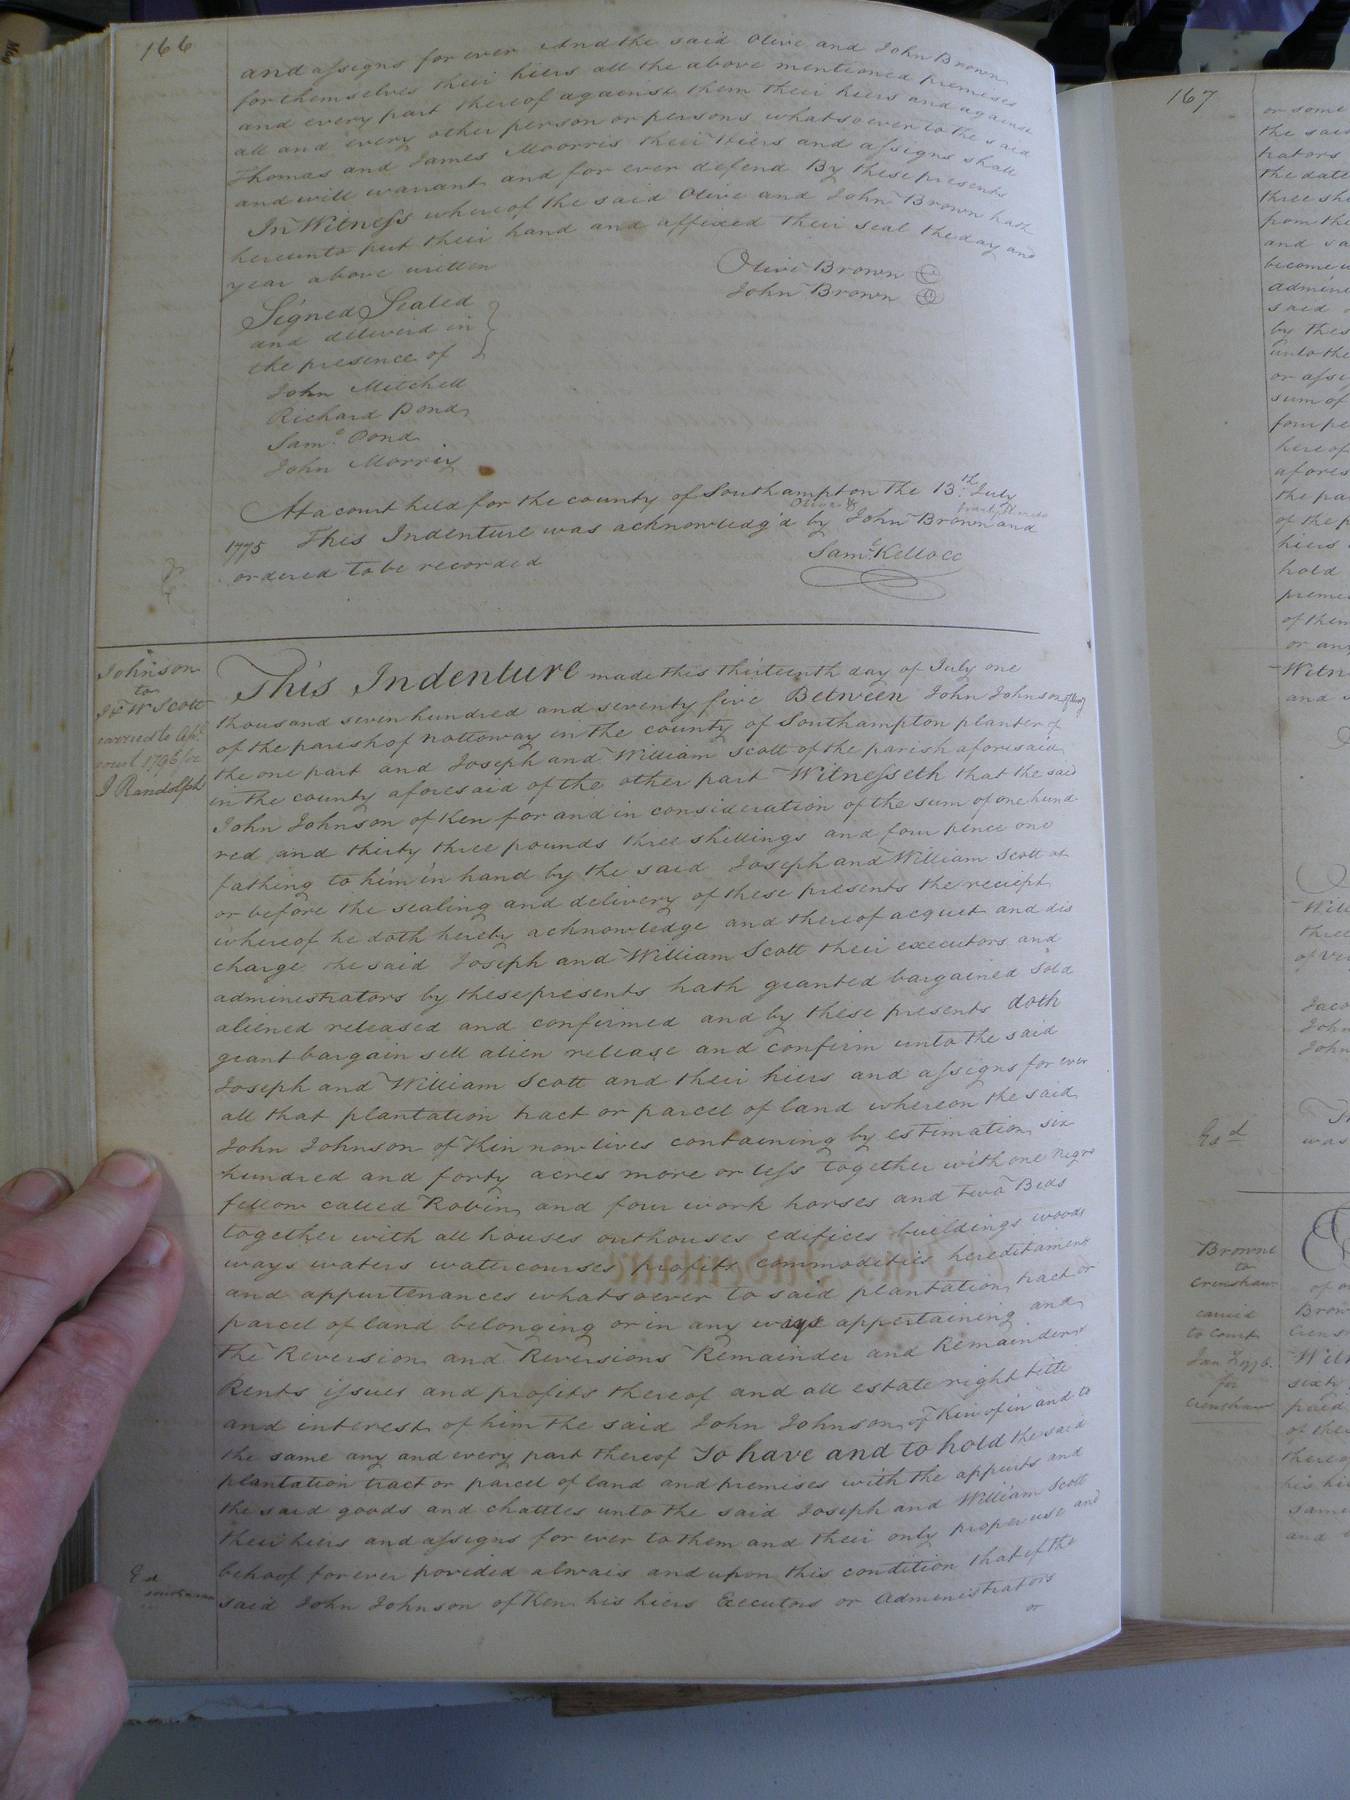 166
and assigns for ever And the said Olive and John Brown
for themselves their hiers all the above mentioned premises
and every part thereof against them their hiers and against
all and every other person or persons whatsoever to the said
Thomas and James Moorris their Hiers and assigns shall
and will warrant and for ever defend By these presents
In Witness whereof the said Olive and John Brown hath
hereunto put their hand and affixed their seal the day and
year above written
Olive Brown
John Brown
Signed Sealed
and deliverd in
the presence of
John Mitchell
Richard Pond
Sam.l Pond
John Morris
At a court held for the county of Southampton the 13.th July
1775 This Indenture was acknowledg'd by Olive & John Brown and
ordered to be recorded
Sam.l Kello cc
Johnson
to
J & W Scott
carried to
court 1796
J Randolph
This Indenture made this thirteenth day of July one
thousand seven hundred and seventy five Between John Johnson
of the parish of nottoway in the county of Southampton planter of
the one part and Joseph and William Scott of the parish aforesaid
in the county aforesaid of the other part Witnesseth that the said
John Johnson of Ken for and in consideration of the sum of one hund
red and thirty three pounds three shillings and four pence one
fathing to him in hand by the said Joseph and William Scott at
or before the sealing and delivery of these presents the reciept
whereof he doth hereby acknowledge and thereof acquet and dis
charge the said Joseph and William Scott their executors and
administrators by these presents hath granted bargained sold
aliened released and confirmed and by these presents doth
grant bargain sell alien release and confirm unto the said
Joseph and William Scott and their hiers and assigns for ever
all that plantation tract or parcel of land whereon the said
John Johnson of Kin now lives containing by estimation six
hundred and forty acres more or less together with one Negro
fellow called Robin and four work horses and two Beds
together with all houses outhouses edifices buildings woods
ways waters watercourses profits commodities hereditaments
and appurtenances whatsoever to said plantation tract or
parcel of land belonging or in any ways appertaining and
the Reversion and Reversions Remainder and Remainders
Rents issues and profits thereof and all estate right title
and interest of him the said John Johnson of Kin of in and to
the same any and every part thereof To have and to hold the said
plantation tract or parcel of land and premises with the appurts and
the said goods and chattles unto the said Joseph and William Scott
their hiers and assigns for ever to them and their only proper use and
behoof for ever povided alwais and upon this condition that if the
said John Johnson of Ken his hiers Executors or Administrators
or
167
or some
the said
trators
the date
three sh
from the
and sa
become
admini
said
by thes
unto the
or assi
sum of
four pe
hereof
afores
the pa
of the p
hiers
hold
premi
of them
or any
Witn
and s
Will
three
of Vi
Jaco
John
John
Th
was
Ex.d
Browne
to
Crenshaw
carried
to Court
for
Crenshaw
of
Brow
Cren
Witn
sixty
paid
of the
thereo
his hi
same
and